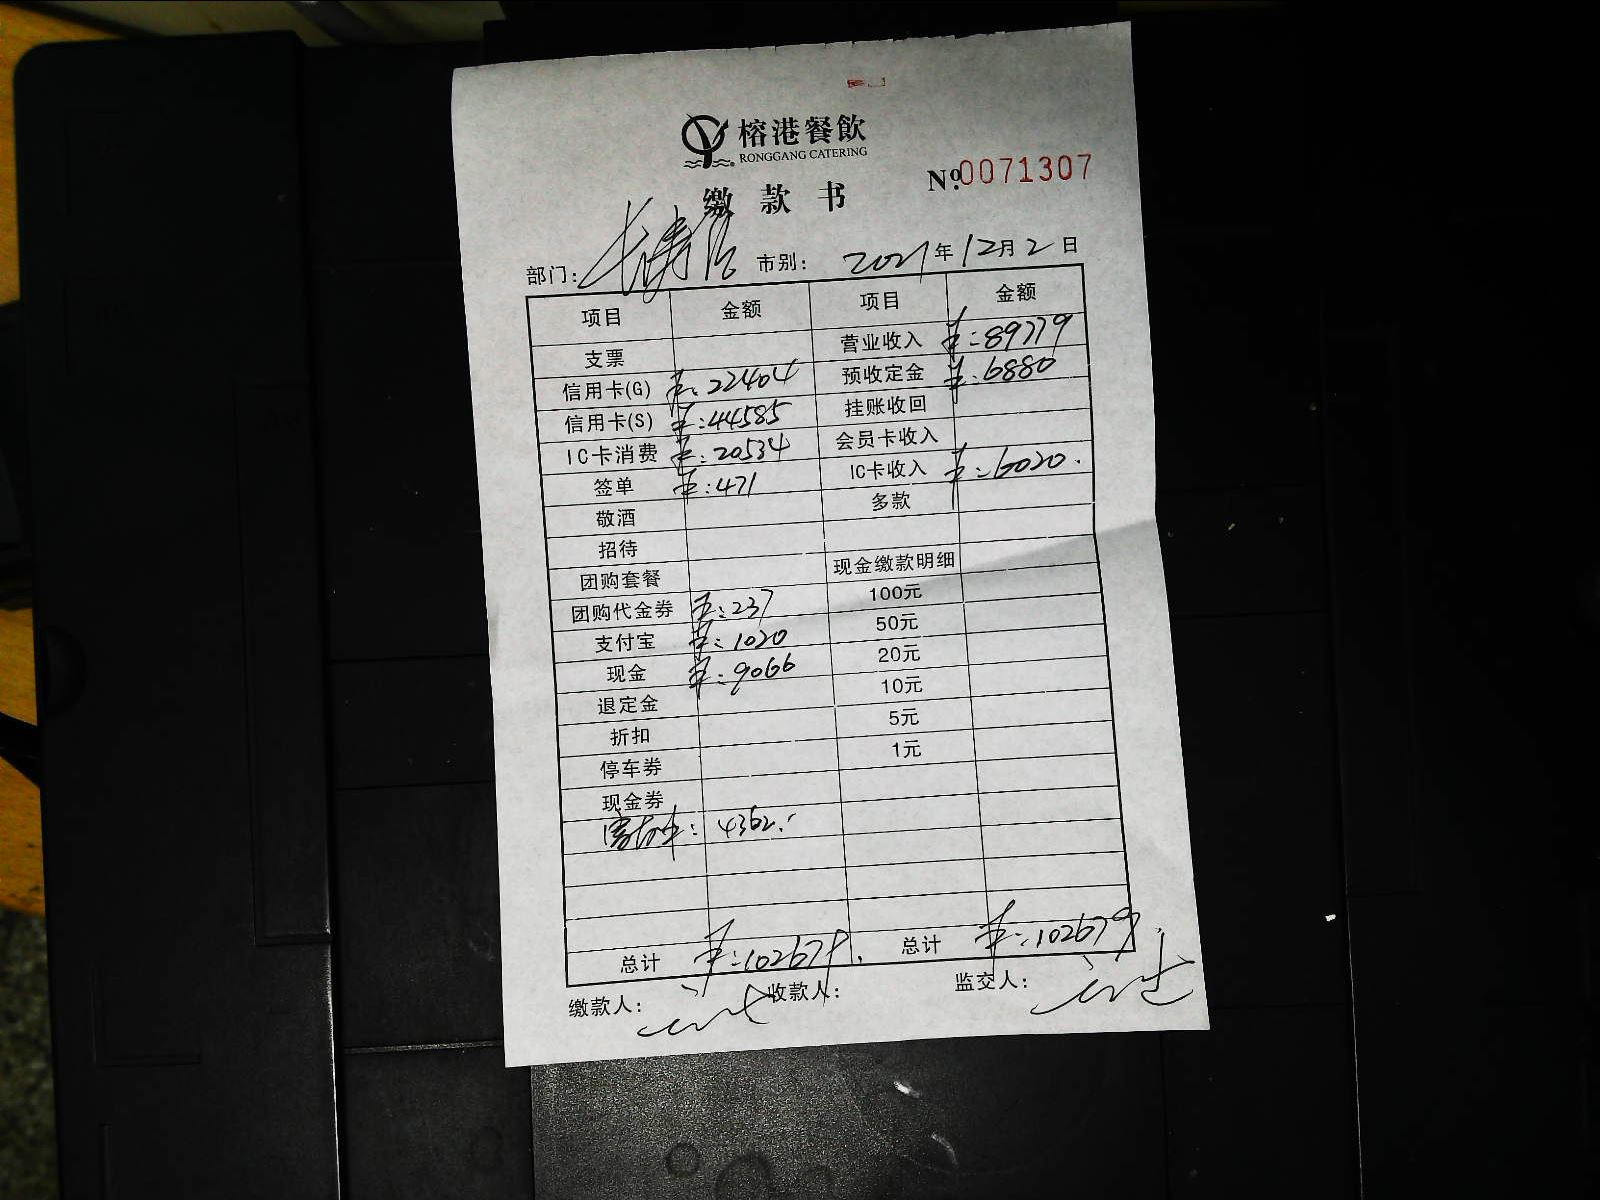 榕港餐飲
RONGGANG CATERING
缴款书 Nº.0071307
部门: 市别: 2021年12月2日
项目 金额 项目 金额
支票 营业收入 ¥:89779
信用卡(G) ¥:22404 预收定金 ¥:6880
信用卡(S) ¥:44585 挂账收回
IC卡消费 ¥:20534 会员卡收入
签单 ¥:471 IC卡收入 ¥:6020.
敬酒 多款
招待
团购套餐 现金缴款明细
团购代金券 ¥:237 100元
支付宝 ¥:1020 50元
现金 ¥:9066 20元
退定金 10元
折扣 5元
停车券 1元
现金券
: 4362.
总计 ¥:102679. 总计 ¥:102679.
缴款人: 收款人: 监交人: